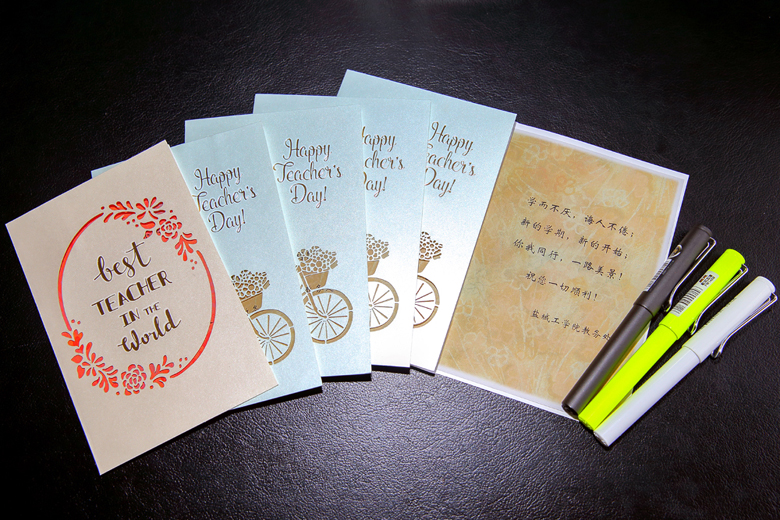 best
TEACHER
IN THE
World
Happy
Teacher's
Day!
Happy
Teacher's
Day!
Happy
Teacher's
Day!
Happy
Teacher's
Day!
学而不厌，诲人不倦；
新的学期，新的开始；
你我同行，一路美景！
祝您一切顺利！
盐城工学院教务处